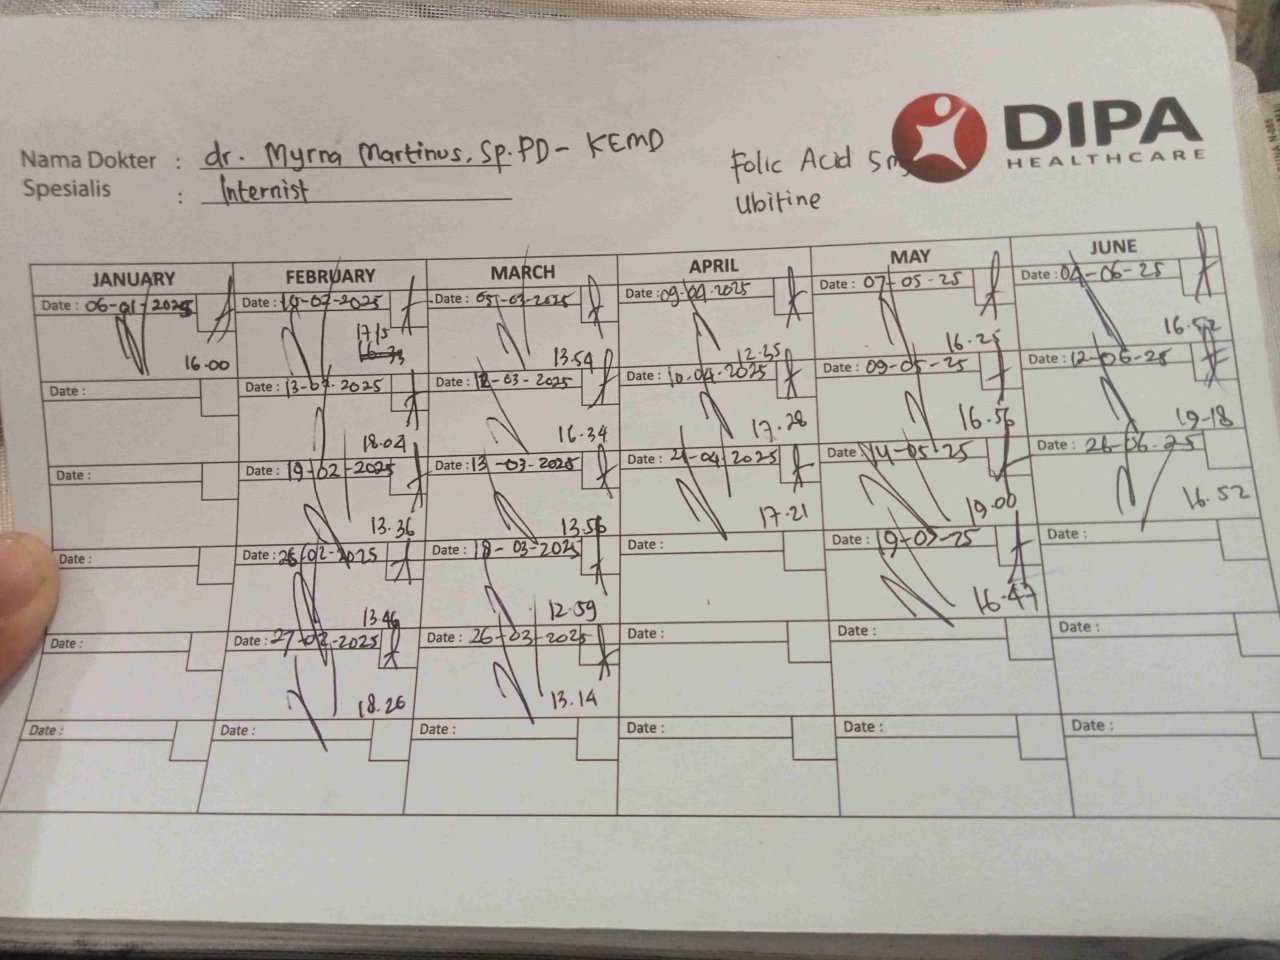 DIPA
HEALTHCARE
Nama Dokter : dr. Myrna Martinus, Sp.PD - KEMD
Spesialis : Internist
Folic Acid 5mg
Ubitine
JANUARY FEBRUARY MARCH APRIL MAY JUNE
Date : 06-01-2025 Date : -02-2025 Date : 05-03-2025 Date : 09-04-2025 Date : 07-05-25 Date : 04-06-25
16.00 1715 13.54 12.35 16.25 16.52
Date : Date : 13-02-2025 Date : 12-03-2025 Date : 10-04-2025 Date : 09-05-25 Date : 12-06-25
18.04 16.34 17.28 16.56 19-18
Date : Date : 19-02-2025 Date : 13-03-2025 Date : 21-04-2025 Date : 14-05-25 Date : 26-06-25
13.36 13.56 17.21 19.00 16.52
Date : Date : 26-02-2025 Date : 18-03-2025 Date : Date : 19-05-25 Date :
13.46 12.59 16.47
Date : Date : 27-02-2025 Date : 26-03-2025 Date : Date : Date :
18.26 13.14
Date : Date : Date : Date : Date : Date :